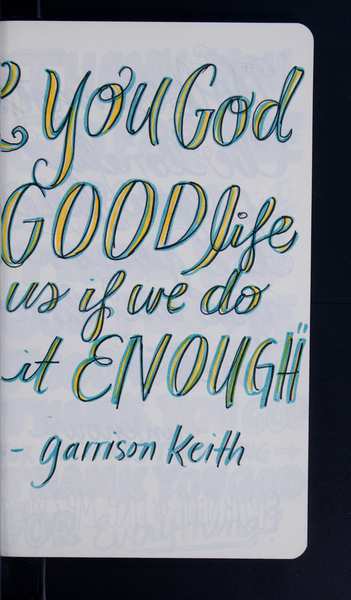 you God
GOOD life
us if we do
it ENOUGH"
- garrison Keith